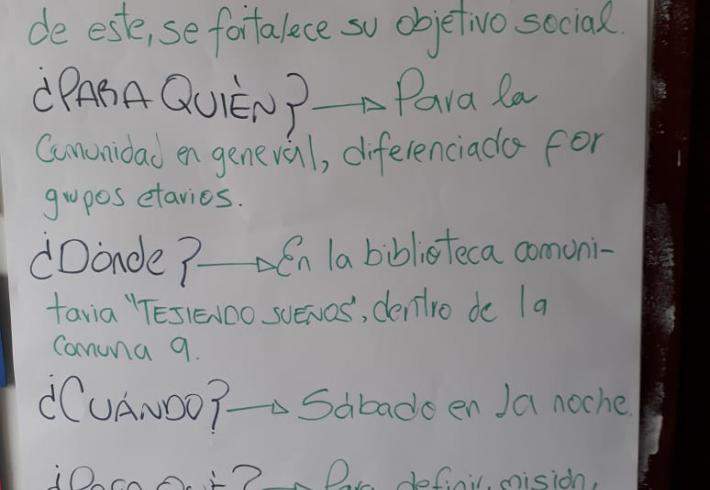 de este, se fortalece su objetivo social.
¿PARA QUIÉN? → Para la
Comunidad en general, diferenciado por
grupos etarios.
¿Dónde? → En la biblioteca comuni-
taria "TEJIENDO SUEÑOS", dentro de la
Comuna 9.
¿CUÁNDO? → Sábado en la noche.
¿Para Qué? → Para definir misión,